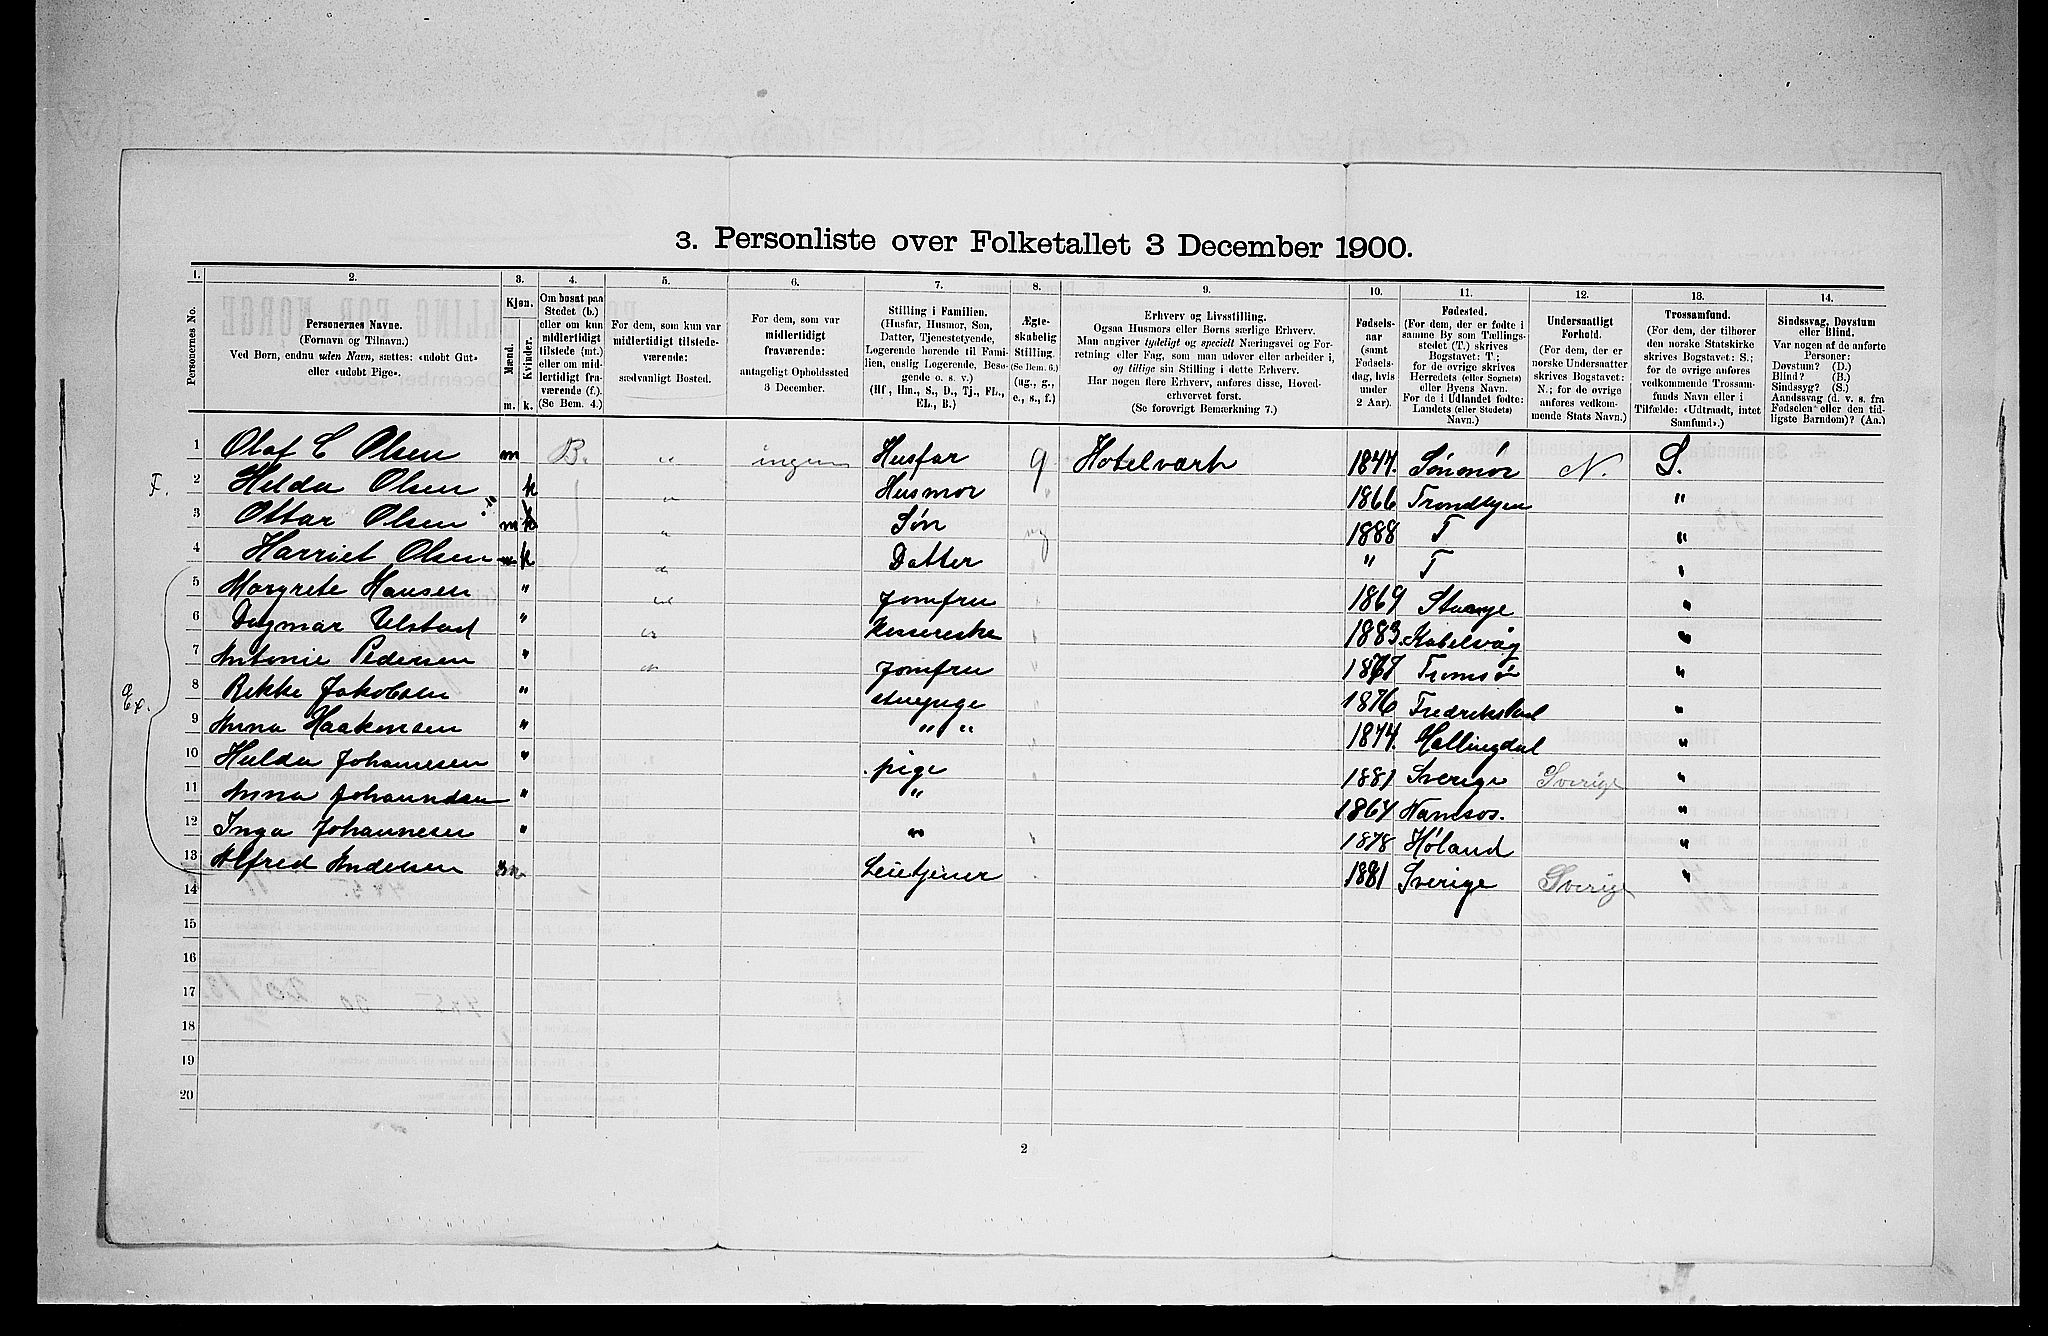 3. Personliste over Folketallet 3 December 1900.
1. 2. 3. 4. 5. 6. 7. 8. 9. 10. 11. 12. 13. 14.
Personernes No.
Personernes Navne.
(Fornavn og Tilnavn.)
Ved Børn, endnu uden Navn, sættes: «udobt Gut»
eller «udobt Pige».
Kjøn.
Mænd. Kvinder.
m. k.
Om bosat paa
Stedet (b.)
eller om kun
midlertidigt
tilstede (mt.)
eller om mid-
lertidigt fra-
værende (f.).
(Se Bem. 4.)
For dem, som kun var
midlertidigt tilstede-
værende:
sædvanligt Bosted.
For dem, som var
midlertidigt
fraværende:
antageligt Opholdssted
3 December.
Stilling i Familien.
(Husfar, Husmor, Søn,
Datter, Tjenestetyende,
Logerende hørende til Fami-
lien, enslig Logerende, Besø-
gende o. s. v.)
(Hf, Hm., S., D., Tj., FL.,
EL., B.)
Ægte-
skabelig
Stilling.
(Se Bem. 6.)
(ug., g.,
e., s., f.)
Erhverv og Livsstilling.
Ogsaa Husmors eller Børns særlige Erhverv.
Man angiver tydeligt og specielt Næringsvei og For-
retning eller Fag, som man udøver eller arbeider i,
og tillige sin Stilling i dette Erhverv.
Har nogen flere Erhverv, anføres disse, Hoved-
erhvervet først.
(Se forøvrigt Bemærkning 7.)
Fødsels-
aar
(samt
Fødsels-
dag, hvis
under
2 Aar).
Fødested.
(For dem, der er fødte i
samme By som Tællings-
stedet (T.) skrives
Bogstavet: T.;
for de øvrige skrives
Herredets (eller Sognets)
eller Byens Navn.
For de i Udlandet fødte:
Landets (eller Stedets)
Navn.)
Undersaatligt
Forhold.
(For dem, der er
norske Undersaatter
skrives Bogstavet:
N.; for de øvrige
anføres vedkom-
mende Stats Navn.)
Trossamfund.
(For dem, der tilhører
den norske Statskirke
skrives Bogstavet: S.;
for de øvrige anføres
vedkommende Trossam-
funds Navn eller i
Tilfælde: «Udtraadt, intet
Samfund».)
Sindssvag, Døvstum
eller Blind.
Var nogen af de anførte
Personer:
Døvstum? (D.)
Blind? (B.)
Sindssyg? (S.)
Aandssvag (d. v. s. fra
Fødselen eller den tid-
ligste Barndom)? (Aa.)
1 Olaf C Olsen m B. " ingen Husfar g Hotelvært 1847. Sønmør N. S.
F. 2 Helda Olsen k " Husmor " 1866 Trondhjem "
3 Ottar Olsen m " Søn ug 1888 T "
4 Harriet Olsen k " Datter " " T "
Ex. 5 Margrete Hansen " " Jomfru " 1869 Stange "
6 Dagmar Ulstad " " 1883. Kabelvåg "
7 Antonie Pedersen " " Jomfru " 1867 Tromsø "
8 Rikke Jakobsen " stuepige " 1876 Fredrikstad "
9 Anna Haakensen " " " " 1874. Hallingdal "
10 Hulda Johannesen " pige " 1881 Sverige Sverige "
11 Anna " " 1864 Namsos. "
12 Inga Johannesen " " " 1878 Høland "
13 Alfred Andersen m 1881 Sverige Sverige "
14
15
16
17
18
19
20
2